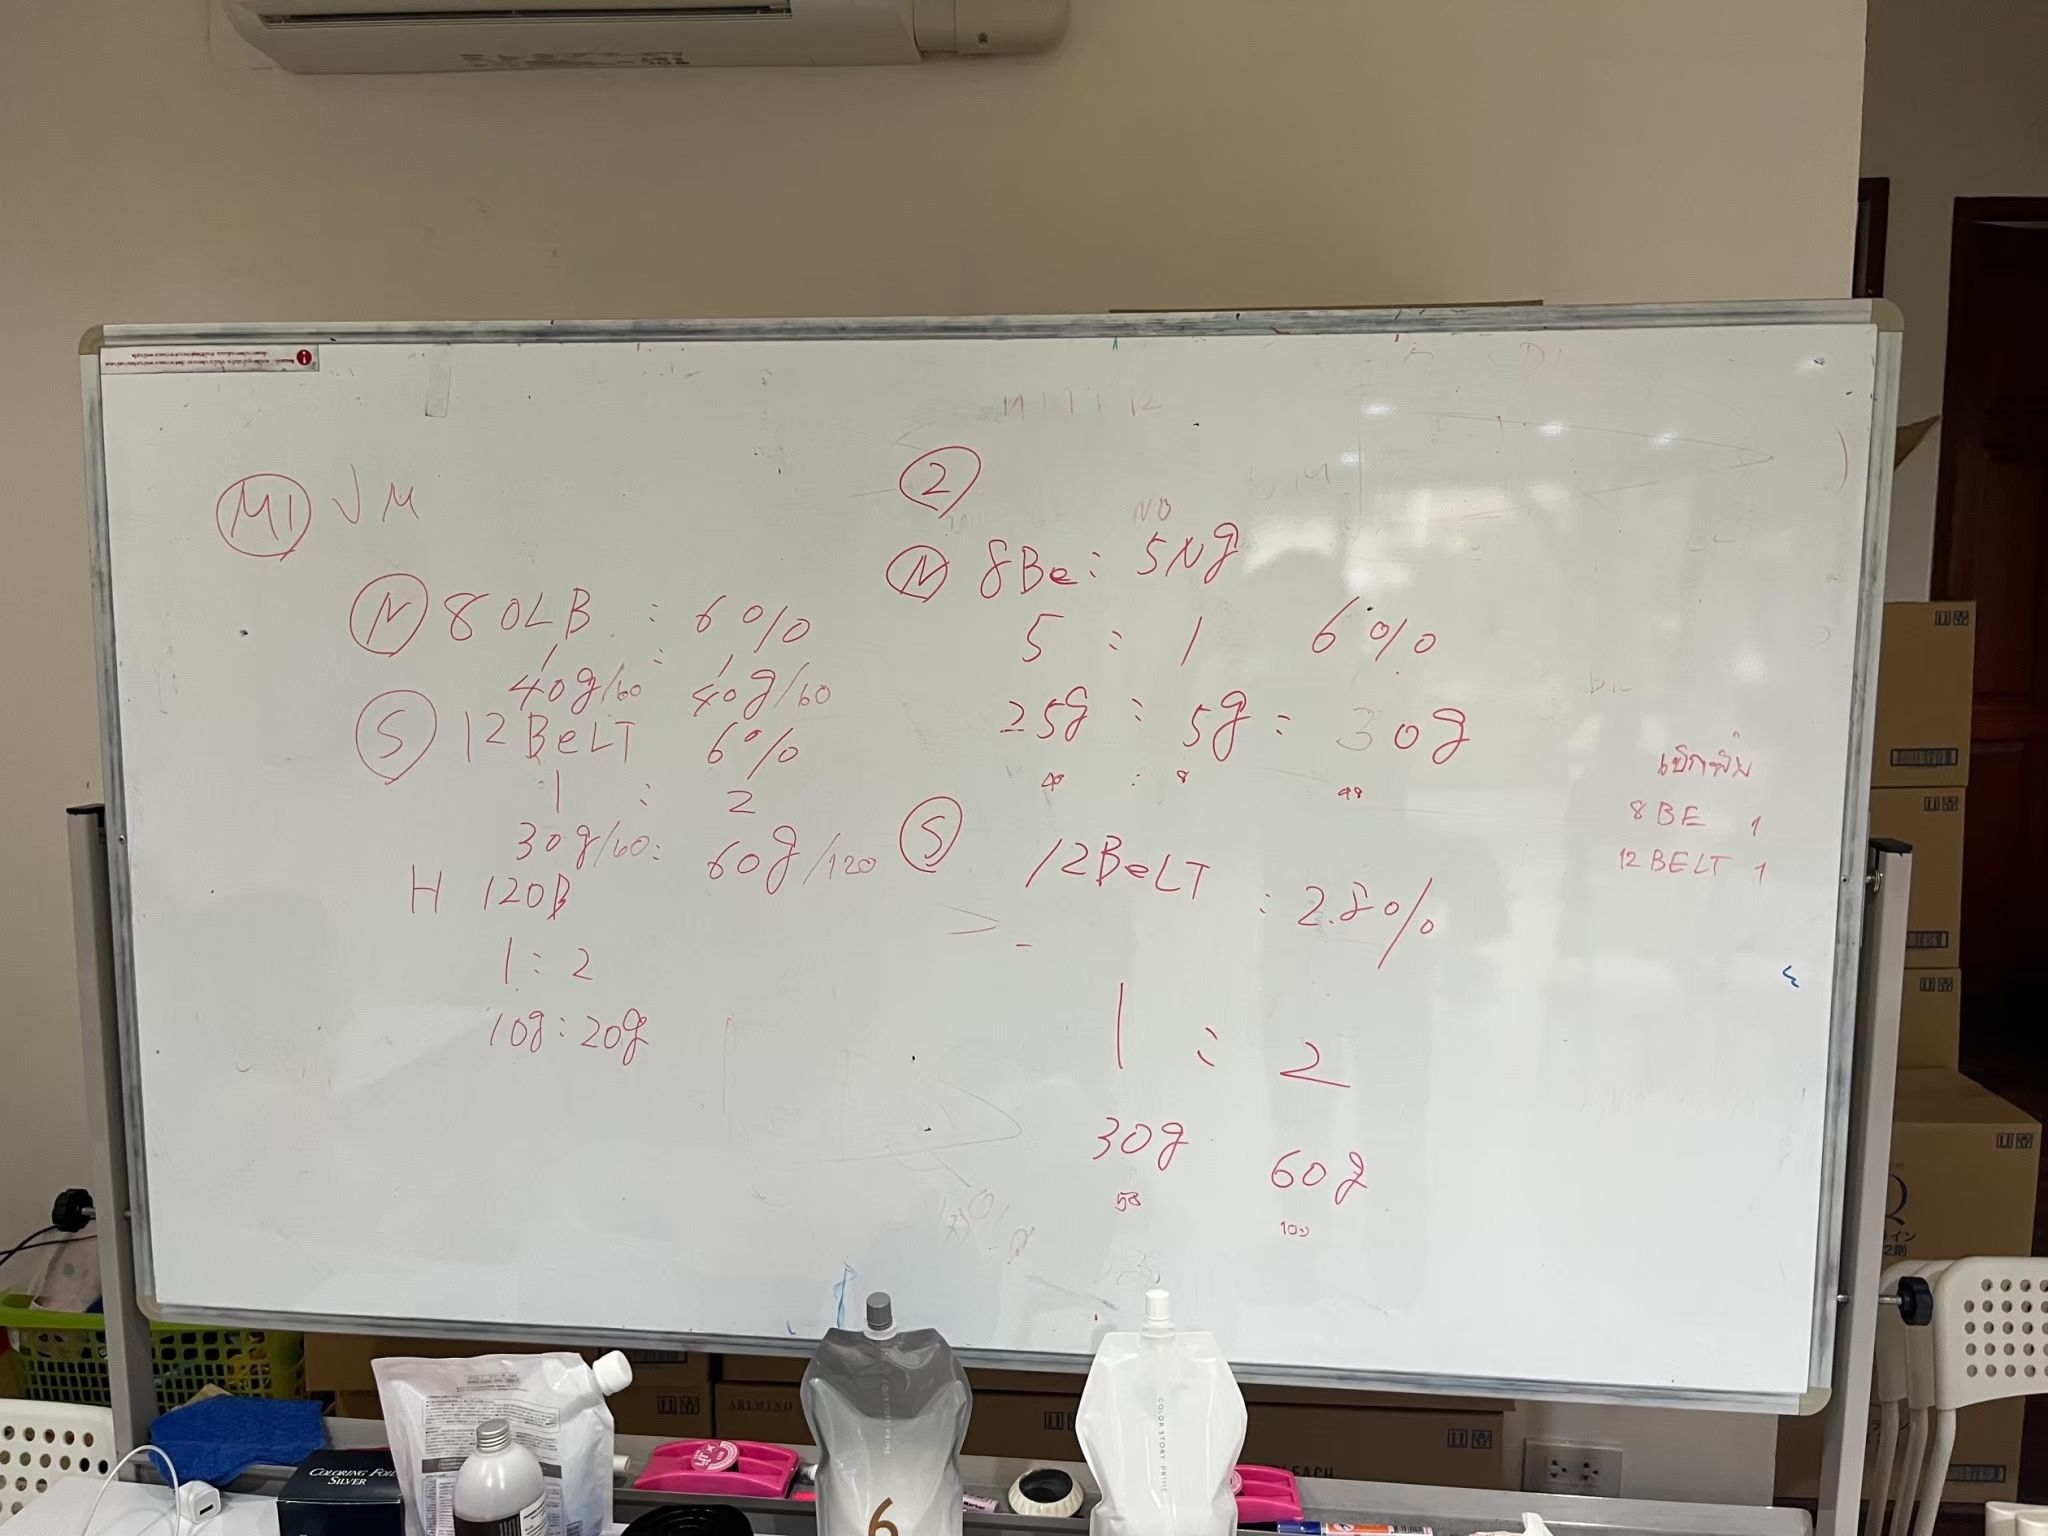 M1 JM
N 8 OLB : 6%
1 : 1
40g/60 40g/60
S 12 BeLT 6%
1 : 2
30g/60: 60g/120
H 12OB
1 : 2
10g : 20g
2
N 8Be : 5Ng
5 : 1 6%
25g : 5g : 30g
S 12BeLT : 2.8%
1 : 2
30g 60g
50 100
เบิกเพิ่ม
8 BE 1
12 BELT 1
COLORING FOIL
SILVER
6
COLOR STORY PRIME
ARIMINO